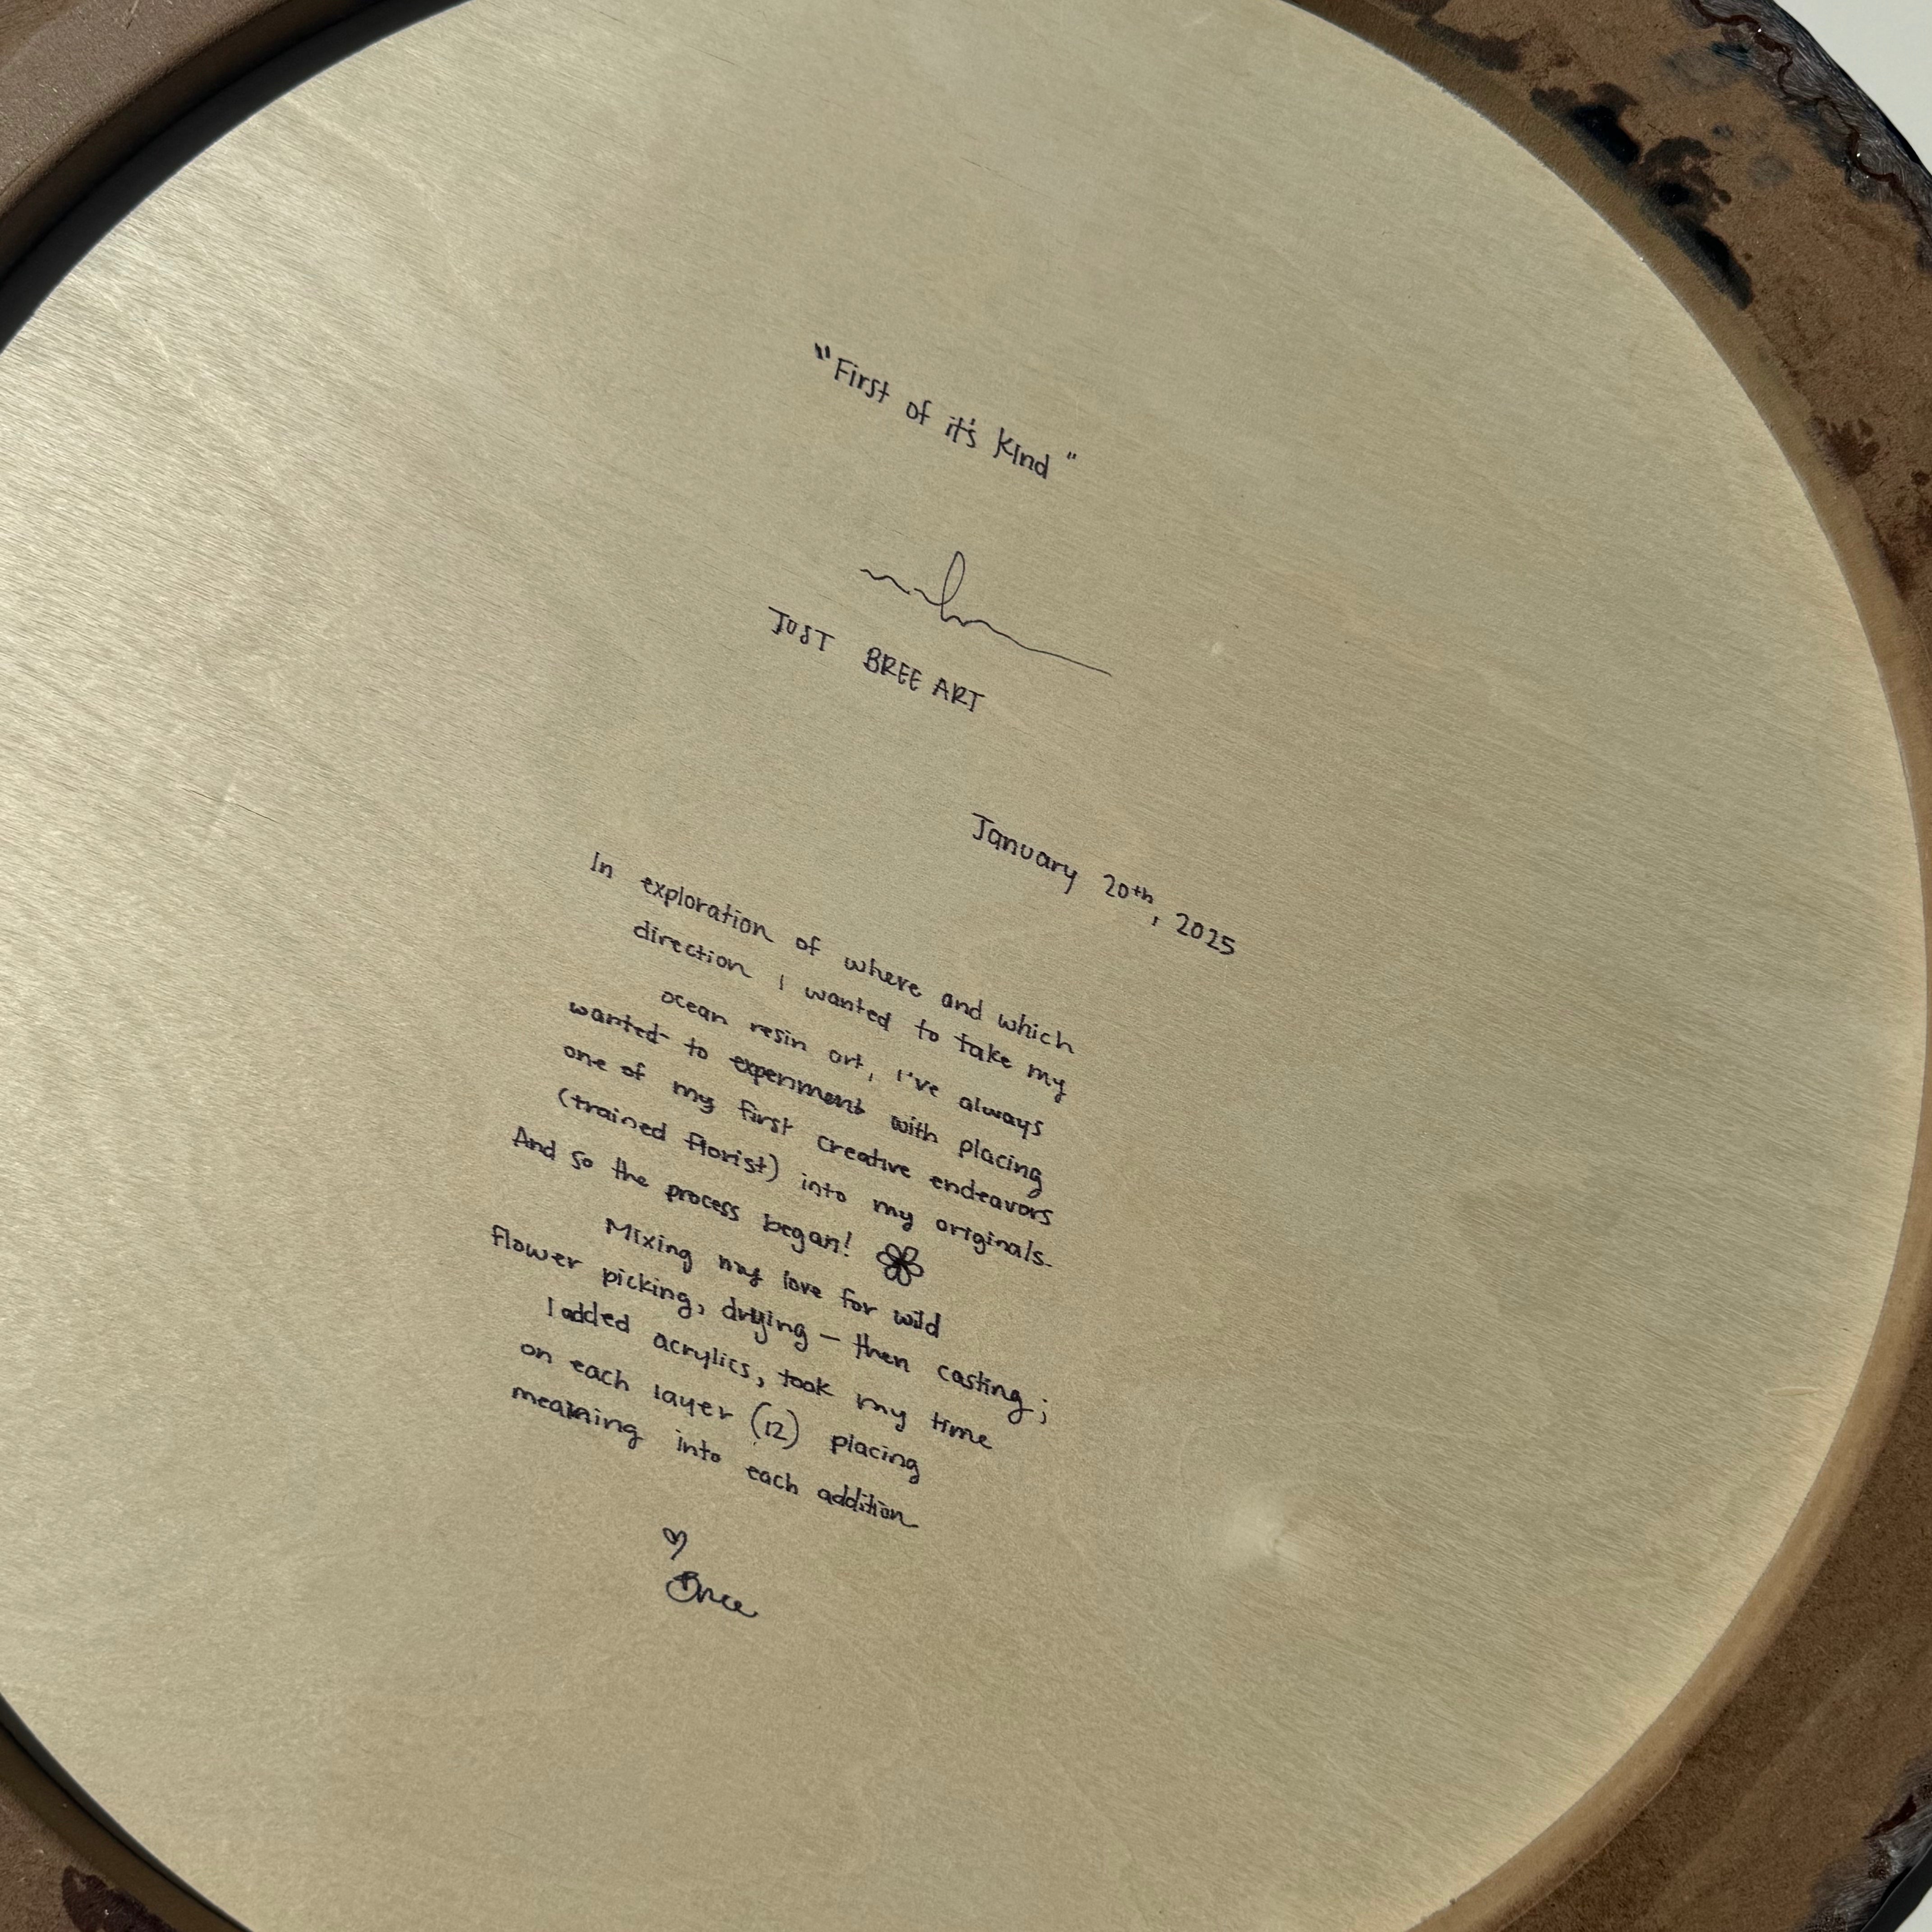 "First of it's Kind"
JUST BREE ART
January 20th, 2025
In exploration of where and which
direction I wanted to take my
ocean resin art, I've always
wanted to experiment with placing
one of my first creative endeavors
(trained florist) into my originals.
And so the process began!
Mixing my love for wild
flower picking, drying – then casting;
I added acrylics, took my time
on each layer (12) placing
meaning into each addition
Bree